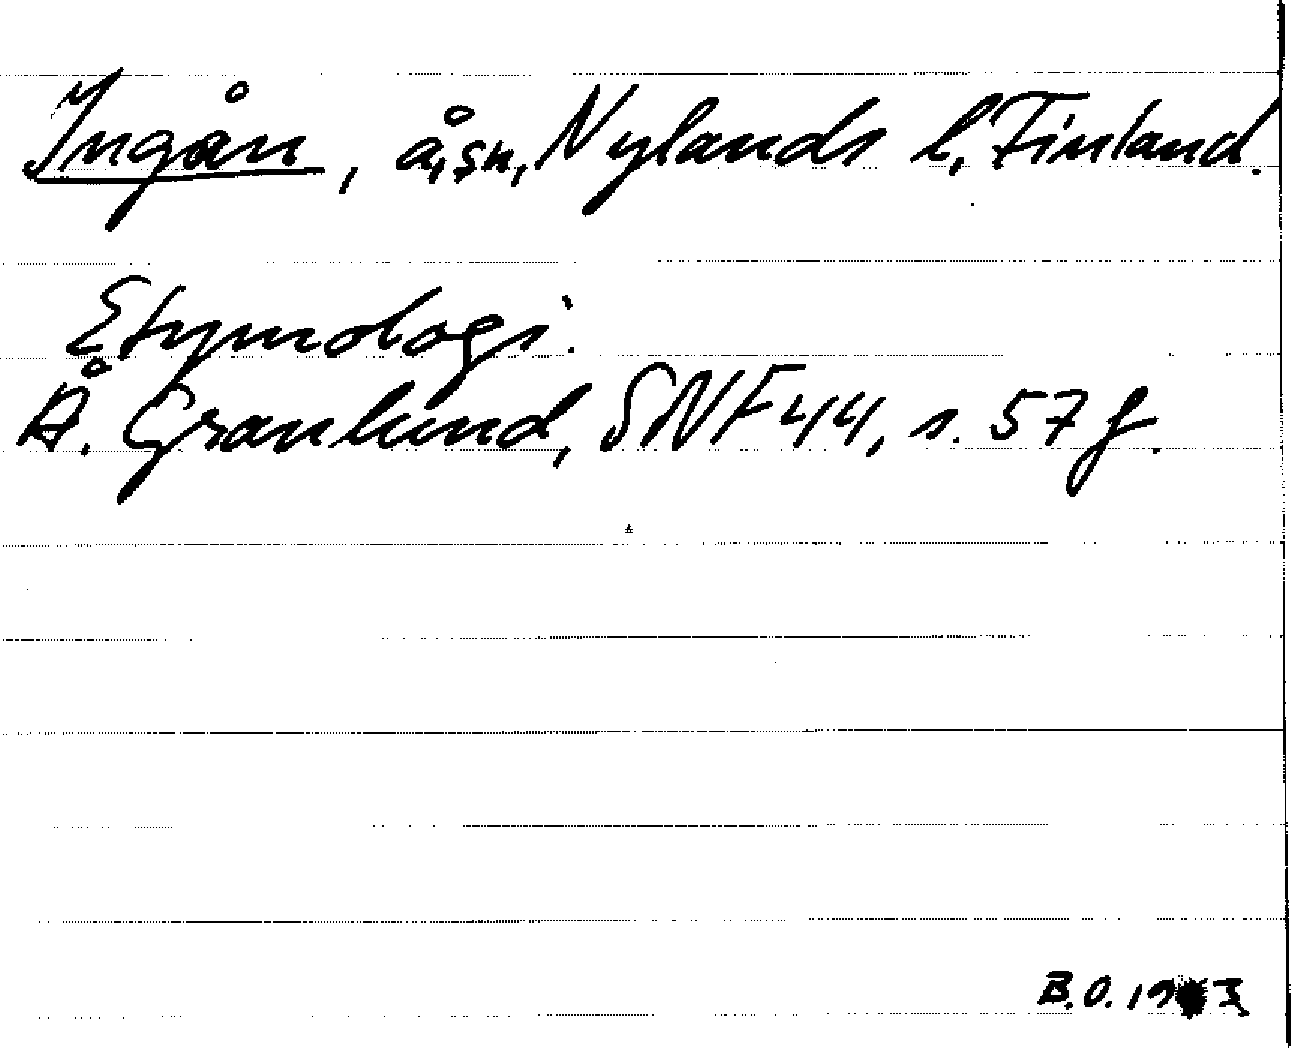 Ingån, å, sn, Nylands l, Finland.
Etymologi.
Å. Granlund, SNF 44, s. 57 f.
B.O.